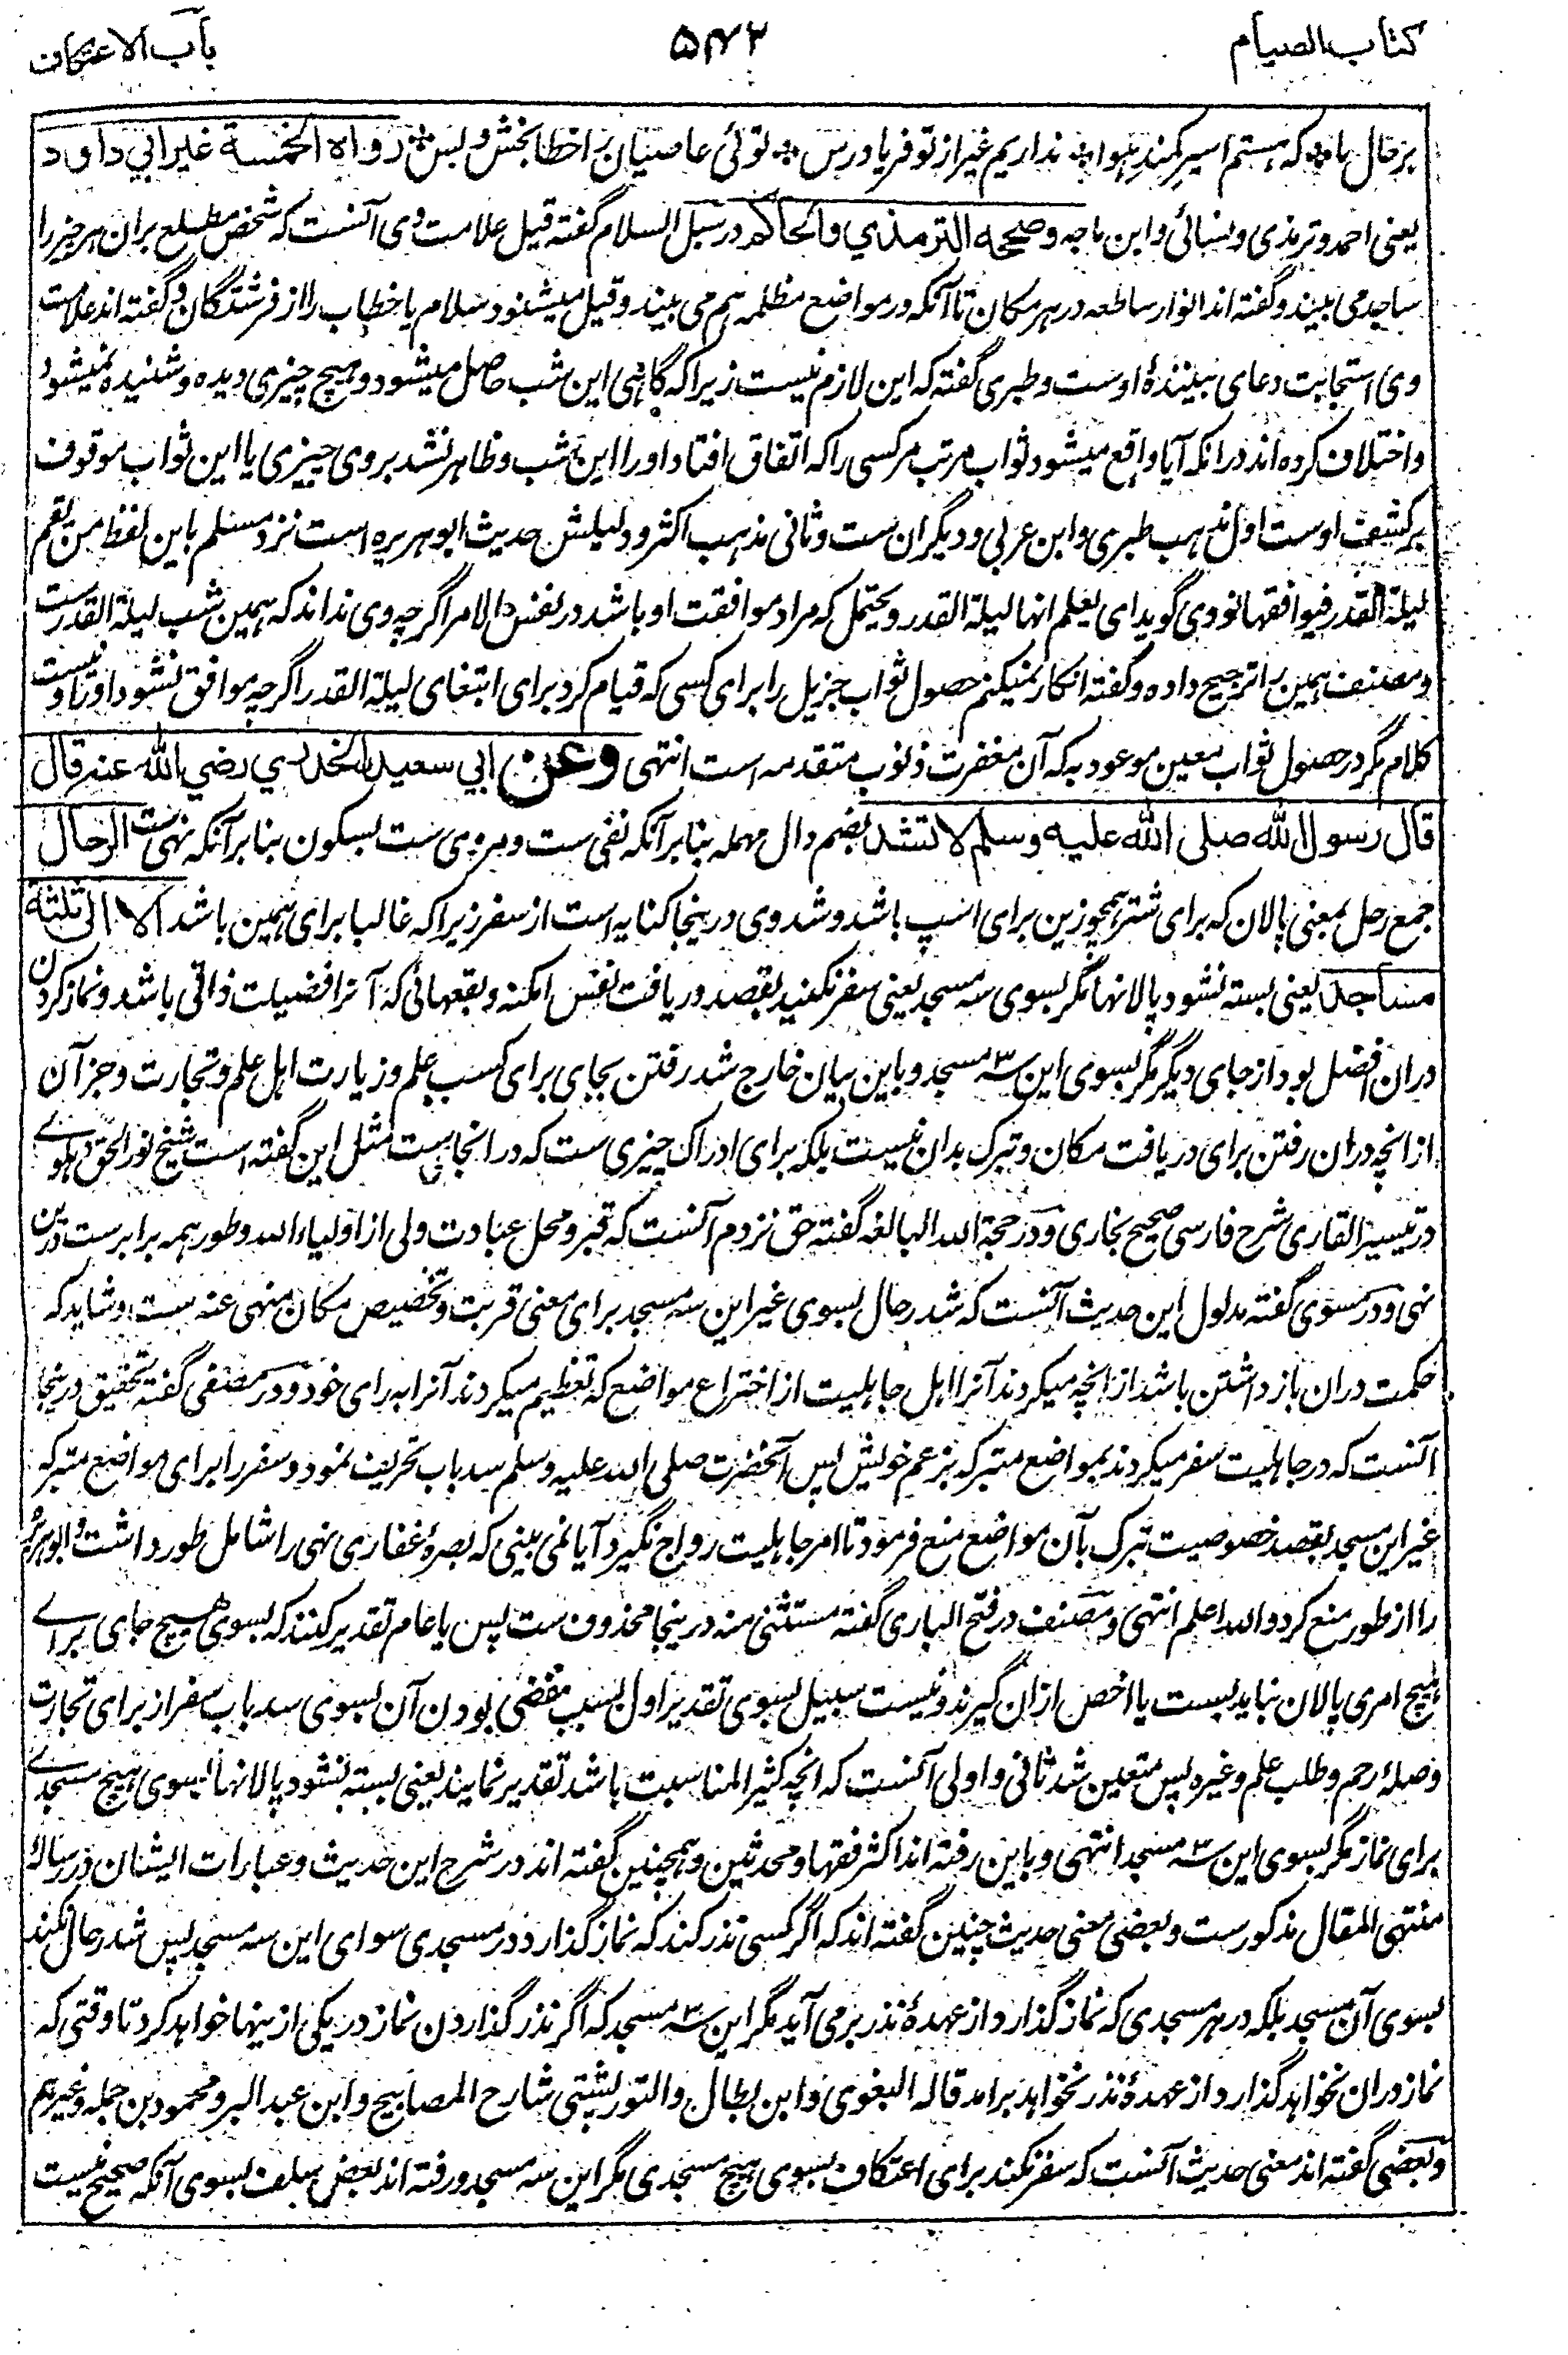 كتاب الصيام
۵۴۲
باب الاعتكاف
بر حال ما ٭ که هستم اسیر کمند هوا ٭ نداریم غیر از تو فریادرس ٭ توئی عاصیان را خطا بخش و بس ٭ رواه الخمسة غير ابي داود
یعنی احمد و ترمذی و نسائی و ابن ماجه وصححه الترمذي والحاكم در سبل السلام گفته قیل علامت وی آنست که شخص مطلع بران هر چیز را
ساجد می بیند و گفته اند انوار ساطعه در هر مکان تا آنکه در مواضع مظلمه هم می بیند و قیل میشنود سلام یا خطاب را از فرشتگان و گفته اند علامت
وی استجابت دعای بیننده اوست و طبری گفته که این لازم نیست زیرا که گاهی این شب حاصل میشود و هیچ چیزی دیده و شنیده نمیشود
و اختلاف کرده اند در انکه آیا واقع میشود ثواب مرتب مر کسی را که اتفاق افتاد او را این شب و ظاهر نشد بروی چیزی یا این ثواب موقوف
بر کشف اوست اول مذهب طبری و ابن عربی و دیگران ست و ثانی مذهب اکثر و دلیلش حدیث ابو هریره است نزد مسلم باین لفظ من یقم
لیلة القدر فیوافقها نووی گوید ای یعلم انها لیلة القدر و یحتمل که مراد موافقت او باشد در نفس الامر اگرچه وی نداند که همین شب لیلة القدر ست
و مصنف همین را ترجیح داده و گفته انکار نمیکنم حصول ثواب جزیل را برای کسی که قیام کرد برای ابتغای لیلة القدر اگرچه موافق نشود او را و نیست
کلام مگر در حصول ثواب معین موعود به که آن مغفرت ذنوب متقدمه است انتهی وعن ابي سعيد الخدري رضي الله عنه قال
قال رسول الله صلى الله عليه وسلم لا تشد بضم دال مهمله بنابر آنکه نفی ست و مروی ست بسکون بنابر آنکه نهی ست الرحال
جمع رحل بمعنی پالان که برای شتر همچو زین برای اسپ باشد و شد وی درینجا کنایه است از سفر زیرا که غالبا برای همین باشد الا الى ثلثة
مساجد یعنی بسته نشود پالانها مگر بسوی سه مسجد یعنی سفر نکنید بقصد دریافت نفس امکنه و بقعهائی که آنرا فضیلت ذاتی باشد و نماز کردن
دران افضل بود از جای دیگر مگر بسوی این سه مسجد و باین بیان خارج شد رفتن بجای برای کسب علم و زیارت اهل علم و تجارت و جز آن
از انچه دران رفتن برای دریافت مکان و تبرک بدان نیست بلکه برای ادراک چیزی ست که در انجاست مثل این گفته است شیخ نور الحق دهلوی
در تیسیر القاری شرح فارسی صحیح بخاری و در حجة الله البالغه گفته حق نزدم آنست که قبر و محل عبادت ولی از اولیاء الله و طور همه برابر ست درین
نهی و در مسوی گفته مدلول این حدیث آنست که شد رحال بسوی غیر این سه مسجد برای معنی قربت و تخصیص مکان منهی عنه ست و شاید که
حکمت دران باز داشتن باشد از انچه میکردند آنرا اهل جاهلیت از اختراع مواضع که تعظیم میکردند آنرا به رای خود و در مصفی گفته تحقیق درینجا
آنست که در جاهلیت سفر میکردند بمواضع متبرکه بزعم خویش پس آنحضرت صلی الله علیه وسلم سد باب تحریف نمود و سفر را برای مواضع متبرکه
غیر این مسجد بقصد خصوصیت تبرک بآن مواضع منع فرمود تا امر جاهلیت رواج نگیرد آیا نمی بینی که بصره غفاری نهی را شامل طور داشت و ابو هریره
را از طور منع کرد والله اعلم انتهی و مصنف در فتح الباری گفته مستثنی منه درینجا محذوف ست پس یا عام تقدیر کنند که بسوی هیچ جای برای
هیچ امری پالان نباید بست یا اخص ازان گیرند و نیست سبیل بسوی تقدیر اول بسبب مفضی بودن آن بسوی سد باب سفر از برای تجارت
و صله رحم و طلب علم و غیره پس متعین شد ثانی و اولی آنست که انچه کثیر المناسبت باشد تقدیر نمایند یعنی بسته نشود پالانها بسوی هیچ مسجدی
برای نماز مگر بسوی این سه مسجد انتهی و باین رفته اند اکثر فقها و محدثین و همچنین گفته اند در شرح این حدیث و عبارات ایشان در رساله
منتهی المقال مذکور ست و بعضی معنی حدیث چنین گفته اند که اگر کسی نذر کند که نماز گذارد در مسجدی سوای این سه مسجد پس شد رحال نکند
بسوی آن مسجد بلکه در هر مسجدی که نماز گذارد از عهده نذر برمی آید مگر این سه مسجد که اگر نذر گذاردن نماز در یکی ازینها خواهد کرد تا وقتی که
نماز دران نخواهد گذارد از عهده نذر نخواهد برامد قاله البغوی و ابن بطال و التوربشتی شارح المصابیح و ابن عبد البر و محمود بن جمله و غیرهم
و بعضی گفته اند معنی حدیث آنست که سفر نکند برای اعتکاف بسوی هیچ مسجدی مگر این سه مسجد و رفته اند بعض سلف بسوی آنکه صحیح نیست